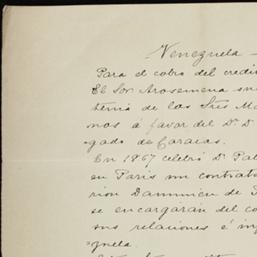 Venezuela
Para el cobro del credi
El Sor Arosemena su
terna de los Sres Ma
nos á favor del Dr D
gado de Caracas.
En 1867 celebró Dn Pal
en Paris un contrat
rion Dammien de
se encargarán del co
sus relaciones é
gnela.